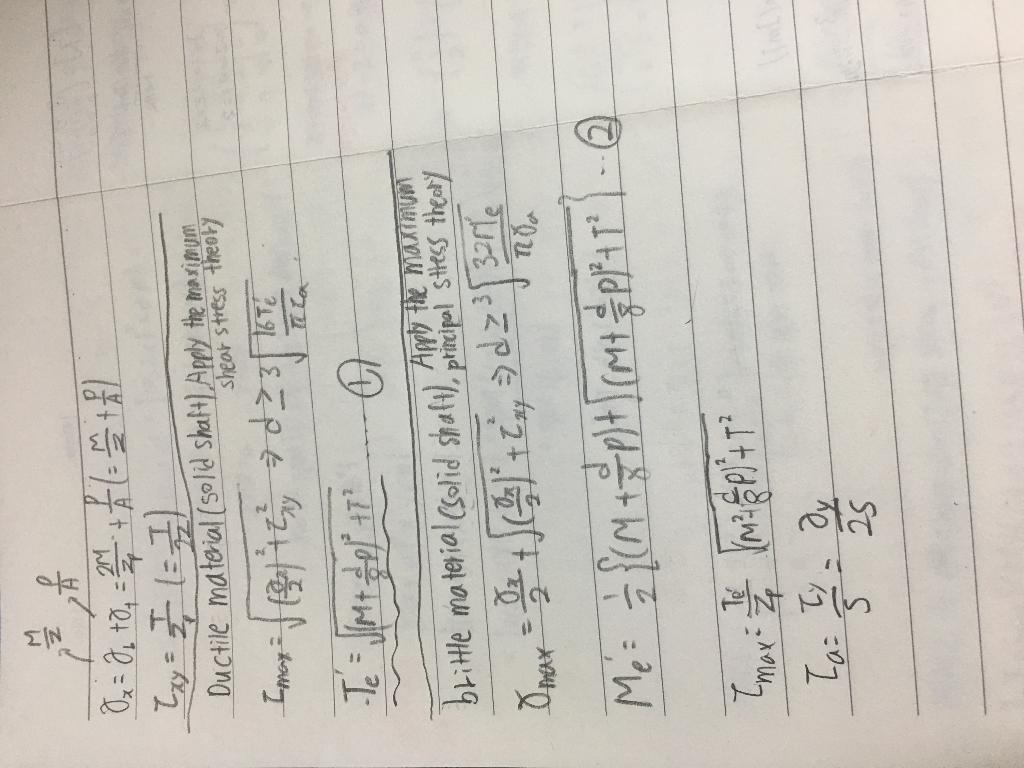 M/Z P/A
σx = σb + σt = 2M/Zp + P/A (= M/Z + P/A)
τxy = T/Zp (= T/2Z)
Ductile material (solid shaft), Apply the maximum
shear stress theory
τmax = √((σx/2)² + τ²xy) ⇒ d ≥ ³√(16Te'/πτa)
Te' = √((M + d/8 P)² + T²) ........ ①
brittle material (solid shaft), Apply the maximum
principal stress theory
σmax = σx/2 + √((σx/2)² + τ²xy) ⇒ d ≥ ³√(32M'e/πσa)
Me' = 1/2 {(M + d/8 P) + √((M + d/8 P)² + T²)} ... ②
τmax = Te'/Zp √(M² + d/8 P)² + T²
τa = τy/S = σy/2S